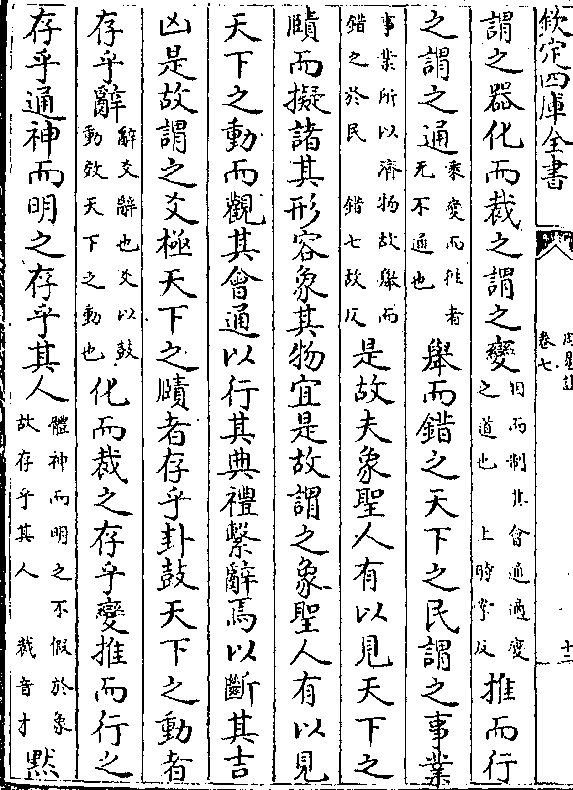 欽定四庫全書
周易註
卷七
十二
謂之器化而裁之謂之變
因而制其會通適變
之道也 上時掌反
推而行
之謂之通
乘變而推者
无不通也
舉而錯之天下之民謂之事業
事業所以濟物故舉而
錯之於民 錯七故反
是故夫象聖人有以見天下之
賾而擬諸其形容象其物宜是故謂之象聖人有以見
天下之動而觀其會通以行其典禮繫辭焉以斷其吉
凶是故謂之爻極天下之賾者存乎卦鼓天下之動者
存乎辭
辭爻辭也爻以鼓
動效天下之動也
化而裁之存乎變推而行之
存乎通神而明之存乎其人
體神而明之不假於象
故存乎其人 裁音才
默